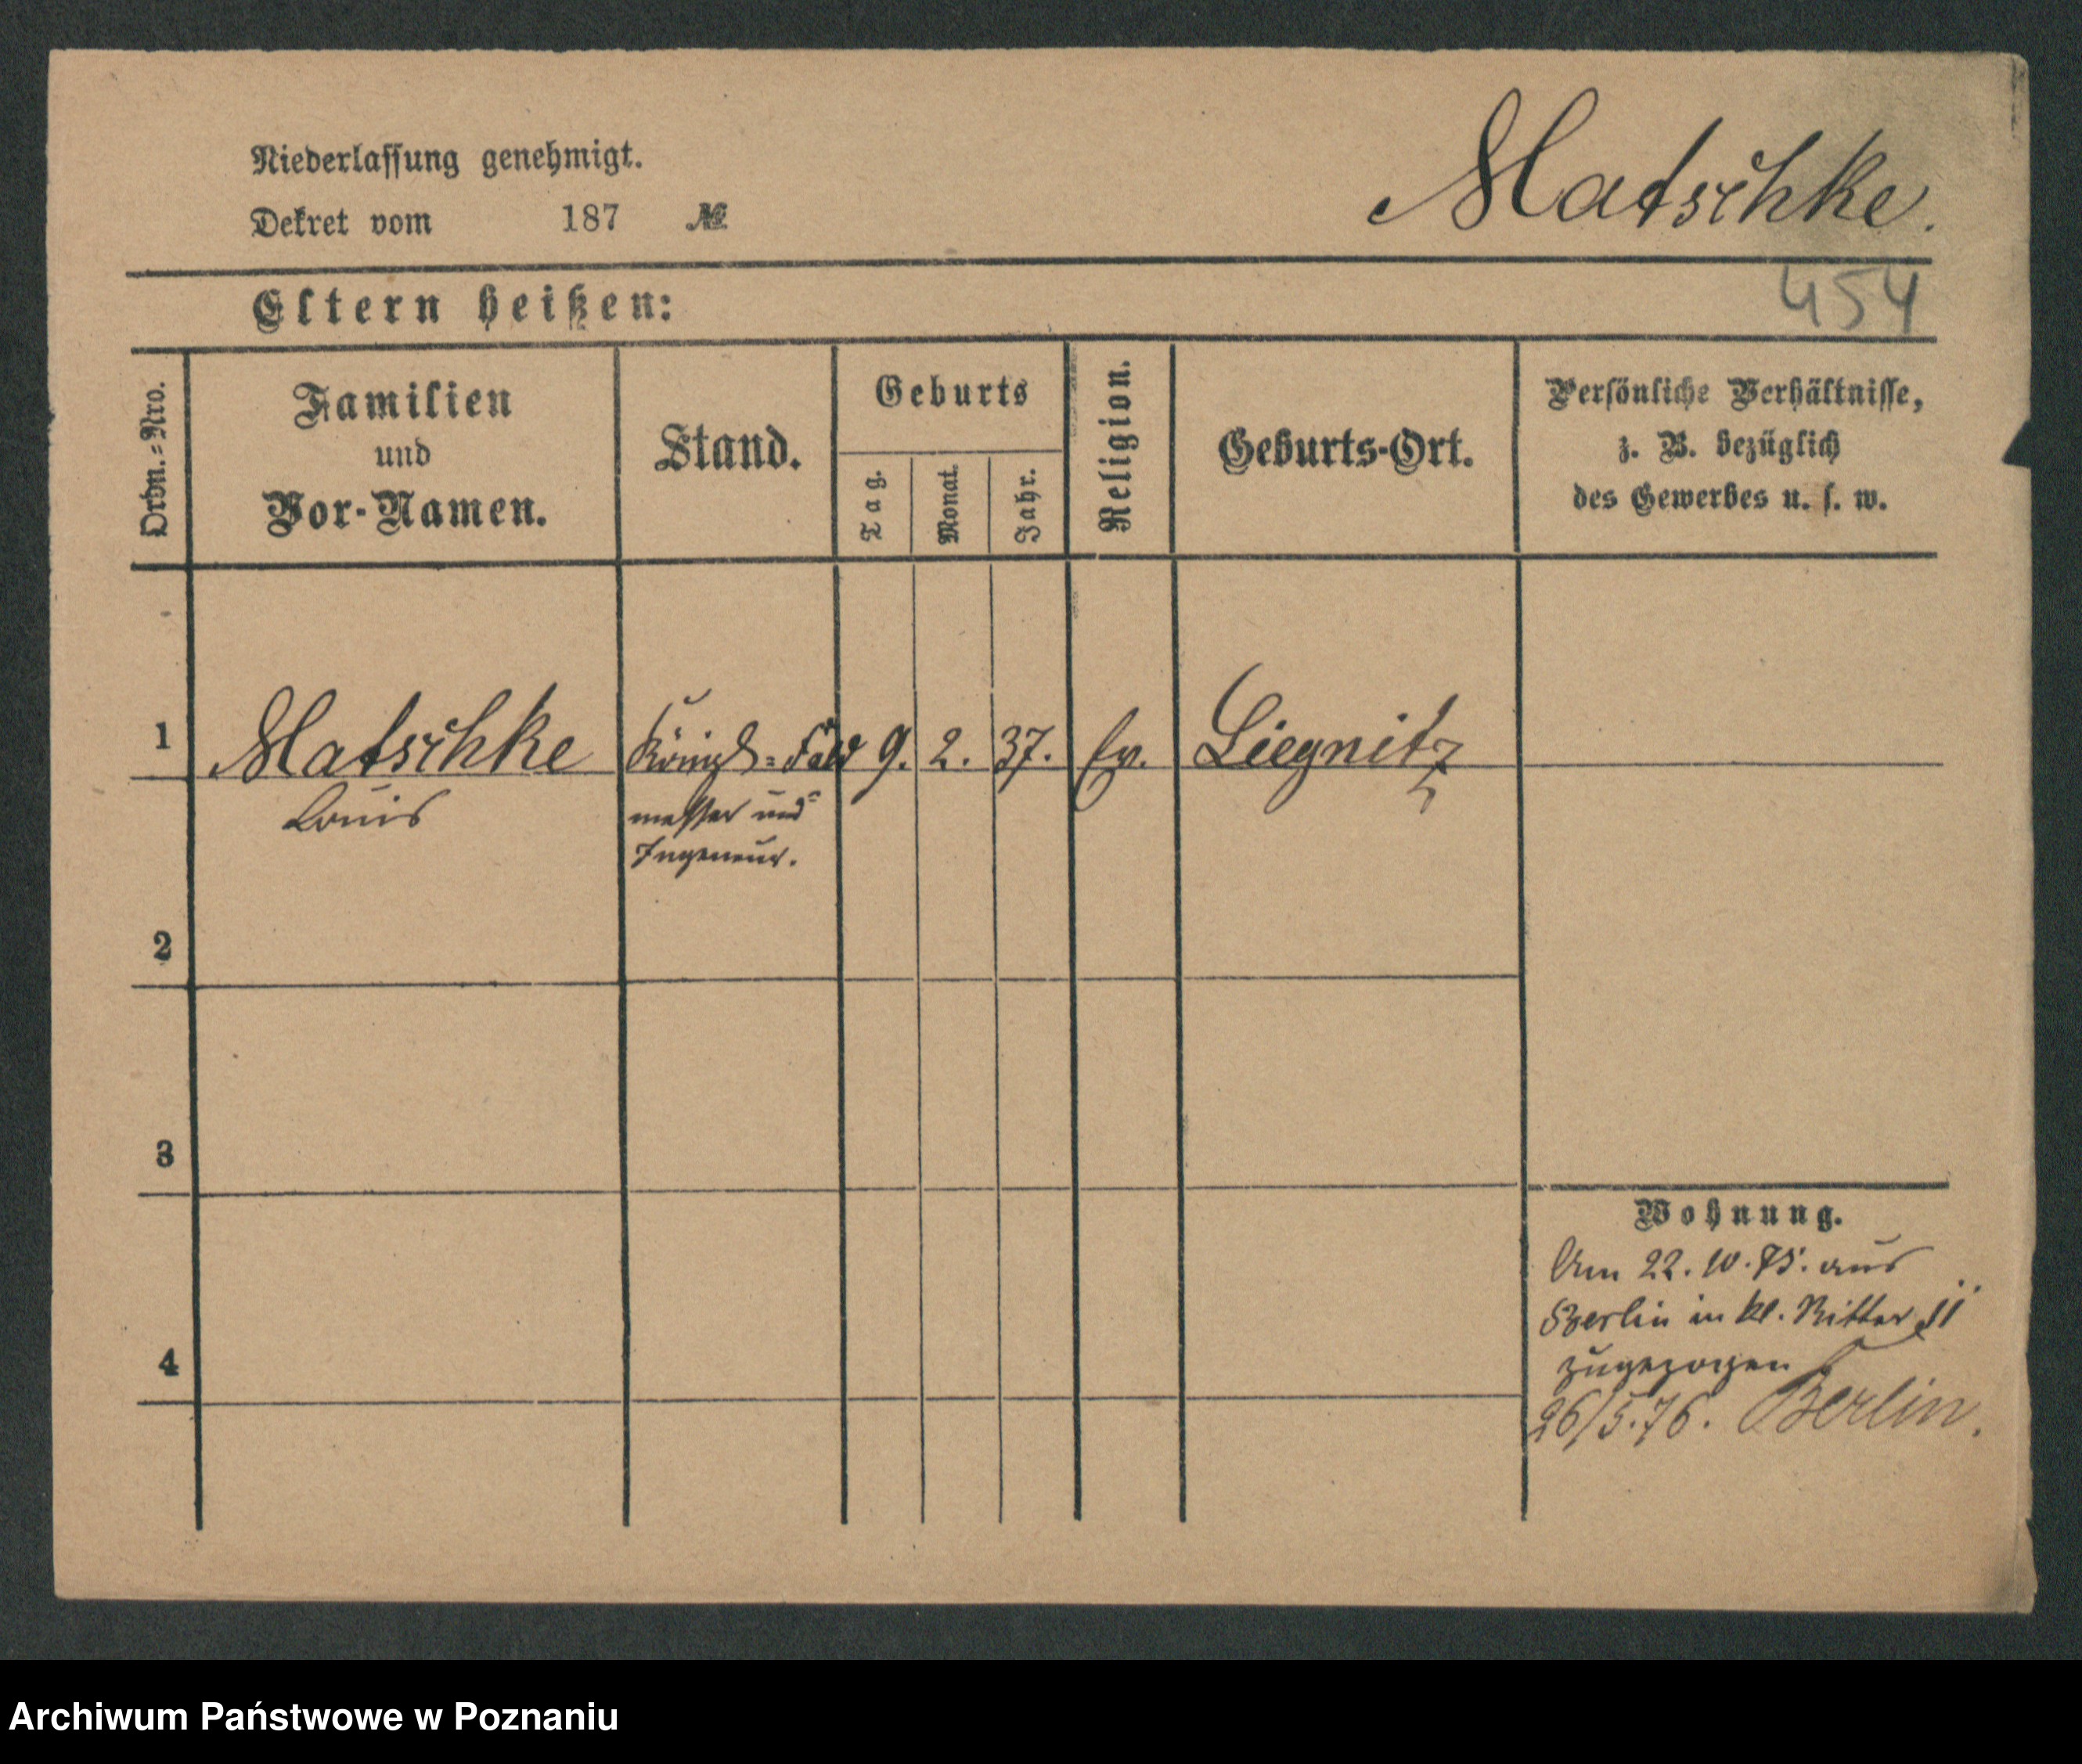 Niederlassung genehmigt.
Dekret vom 187 №
Matschke.
Eltern heißen:
454
Ordn.=Nro.
Familien
und
Vor-Namen.
Stand.
Geburts
Tag.
Monat.
Jahr.
Religion.
Geburts-Ort.
Persönliche Verhältnisse,
z. B. bezüglich
des Gewerbes u. s. w.
1 Matschke Königl=Feld 9. 2. 37. Ev. Liegnitz
Louis messer und
Ingeneur.
2
3
4
Wohnung.
Am 22. 10. 75. aus
Berlin in kl. Ritter 11
zugezogen
26/5.76. Berlin.
Archiwum Państwowe w Poznaniu